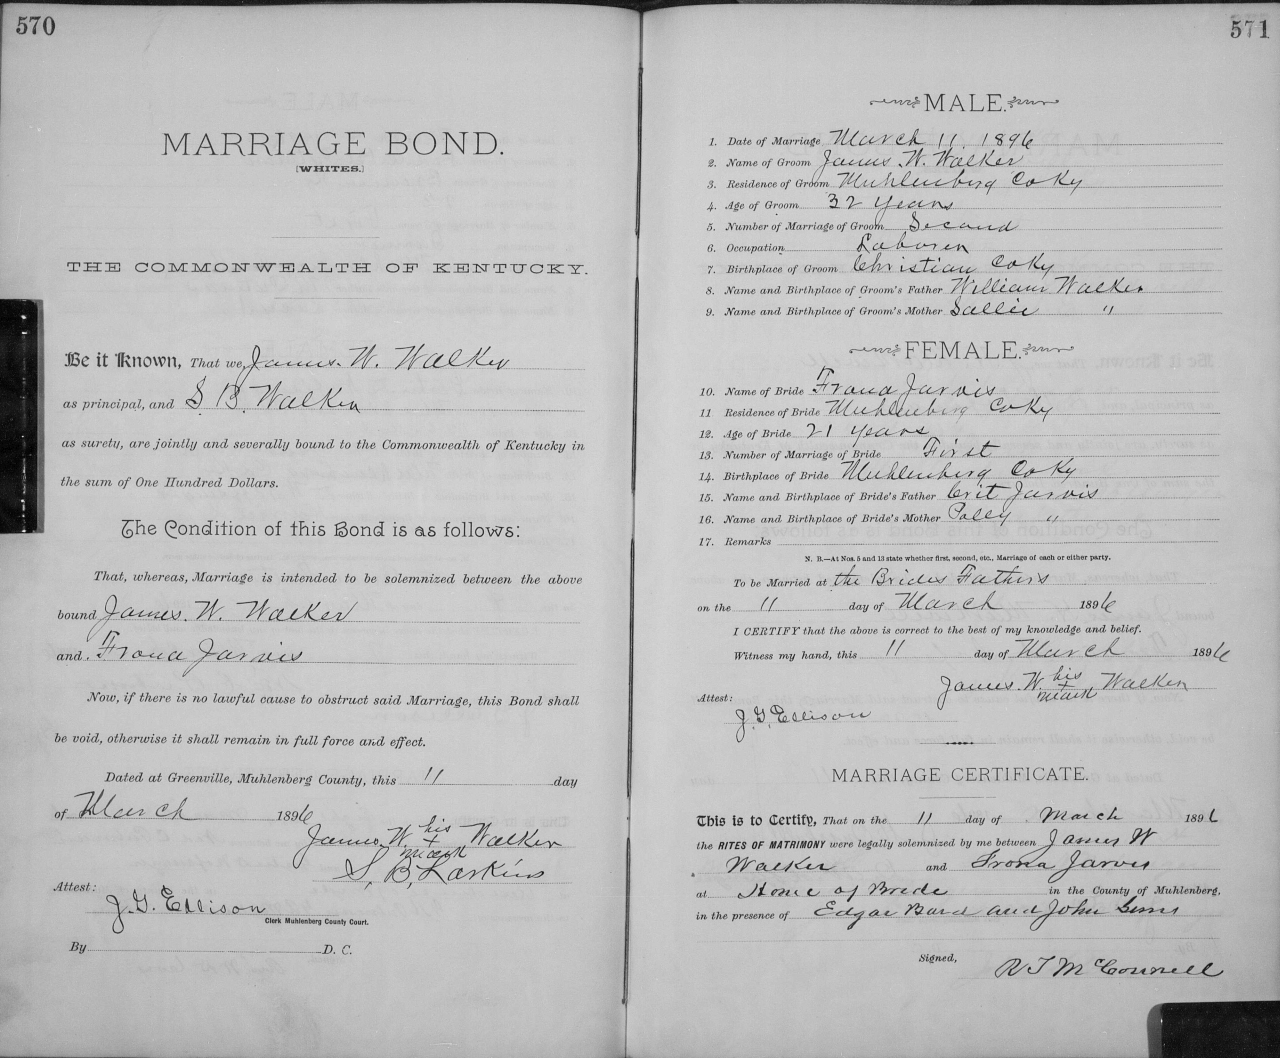 570
MARRIAGE BOND.
[WHITES.]
THE COMMONWEALTH OF KENTUCKY.
Be it Known, That we, James. W. Walker
as principal, and S. B. Walker
as surety, are jointly and severally bound to the Commonwealth of Kentucky in
the sum of One Hundred Dollars.
The Condition of this Bond is as follows:
That, whereas, Marriage is intended to be solemnized between the above
bound James. W. Walker
and. Frona Jarvis
Now, if there is no lawful cause to obstruct said Marriage, this Bond shall
be void, otherwise it shall remain in full force and effect.
Dated at Greenville, Muhlenberg County, this 11 day
of March 1896
James. W. his + mark Walker
S. B. Larkins
Attest:
J. G. Ellison
Clerk Muhlenberg County Court.
By D. C.
571
MALE.
1. Date of Marriage March 11. 1896
2. Name of Groom James. W. Walker
3. Residence of Groom Muhlenberg Co Ky
4. Age of Groom 32 years
5. Number of Marriage of Groom Second
6. Occupation Laborer
7. Birthplace of Groom Christian Co Ky
8. Name and Birthplace of Groom's Father William Walker
9. Name and Birthplace of Groom's Mother Sallie "
FEMALE.
10. Name of Bride Frona Jarvis
11 Residence of Bride Muhlenberg Co Ky
12. Age of Bride 21 years
13. Number of Marriage of Bride First
14. Birthplace of Bride Muhlenberg Co Ky
15. Name and Birthplace of Bride's Father Crit Jarvis
16. Name and Birthplace of Bride's Mother Polly "
17. Remarks
N. B.—At Nos. 5 and 13 state whether first, second, etc., Marriage of each or either party.
To be Married at the Brides Fathers
on the 11 day of March 1896
I CERTIFY that the above is correct to the best of my knowledge and belief.
Witness my hand, this 11 day of March 1896
James. W. his + mark Walker
Attest:
J. G. Ellison
MARRIAGE CERTIFICATE.
This is to Certify, That on the 11 day of March 1896
the RITES OF MATRIMONY were legally solemnized by me between James W
Walker and Frona Jarvis
at Home of Bride in the County of Muhlenberg,
in the presence of Edgar Bard and John
Signed,
R T McConnell